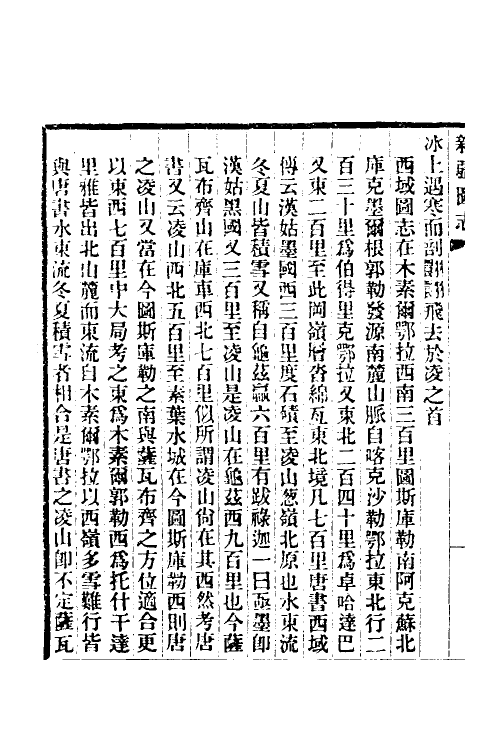 新疆圖志
冰上遇寒而剖翩翩飛去於凌之首
西域圖志在木素爾鄂拉西南三百里圖斯庫勒南阿克蘇北
庫克墨爾根郭勒發源南麓山脈自喀克沙勒鄂拉東北行二
百三十里爲伯得里克鄂拉又東北二百四十里爲卓哈達巴
又東二百里至此岡嶺層沓綿亙東北境凡七百里唐書西域
傳云漢姑墨國西三百里度石磧至凌山葱嶺北原也水東流
冬夏山皆積雪又稱自龜茲贏六百里有跋祿迦一曰亟墨卽
漢姑黑國又三百里至凌山是凌山在龜茲西九百里也今薩
瓦布齊山在庫車西北七百里似所謂凌山尙在其西然考唐
書又云凌山西北五百里至素葉水城在今圖斯庫勒西則唐
之凌山又當在今圖斯庫勒之南與薩瓦布齊之方位適合更
以東西七百里中大局考之東爲木素爾郭勒西爲托什干達
里雅皆出北山麓而東流自木素爾鄂拉以西嶺多雪難行皆
與唐書水東流冬夏積雪者相合是唐書之凌山卽不定薩瓦